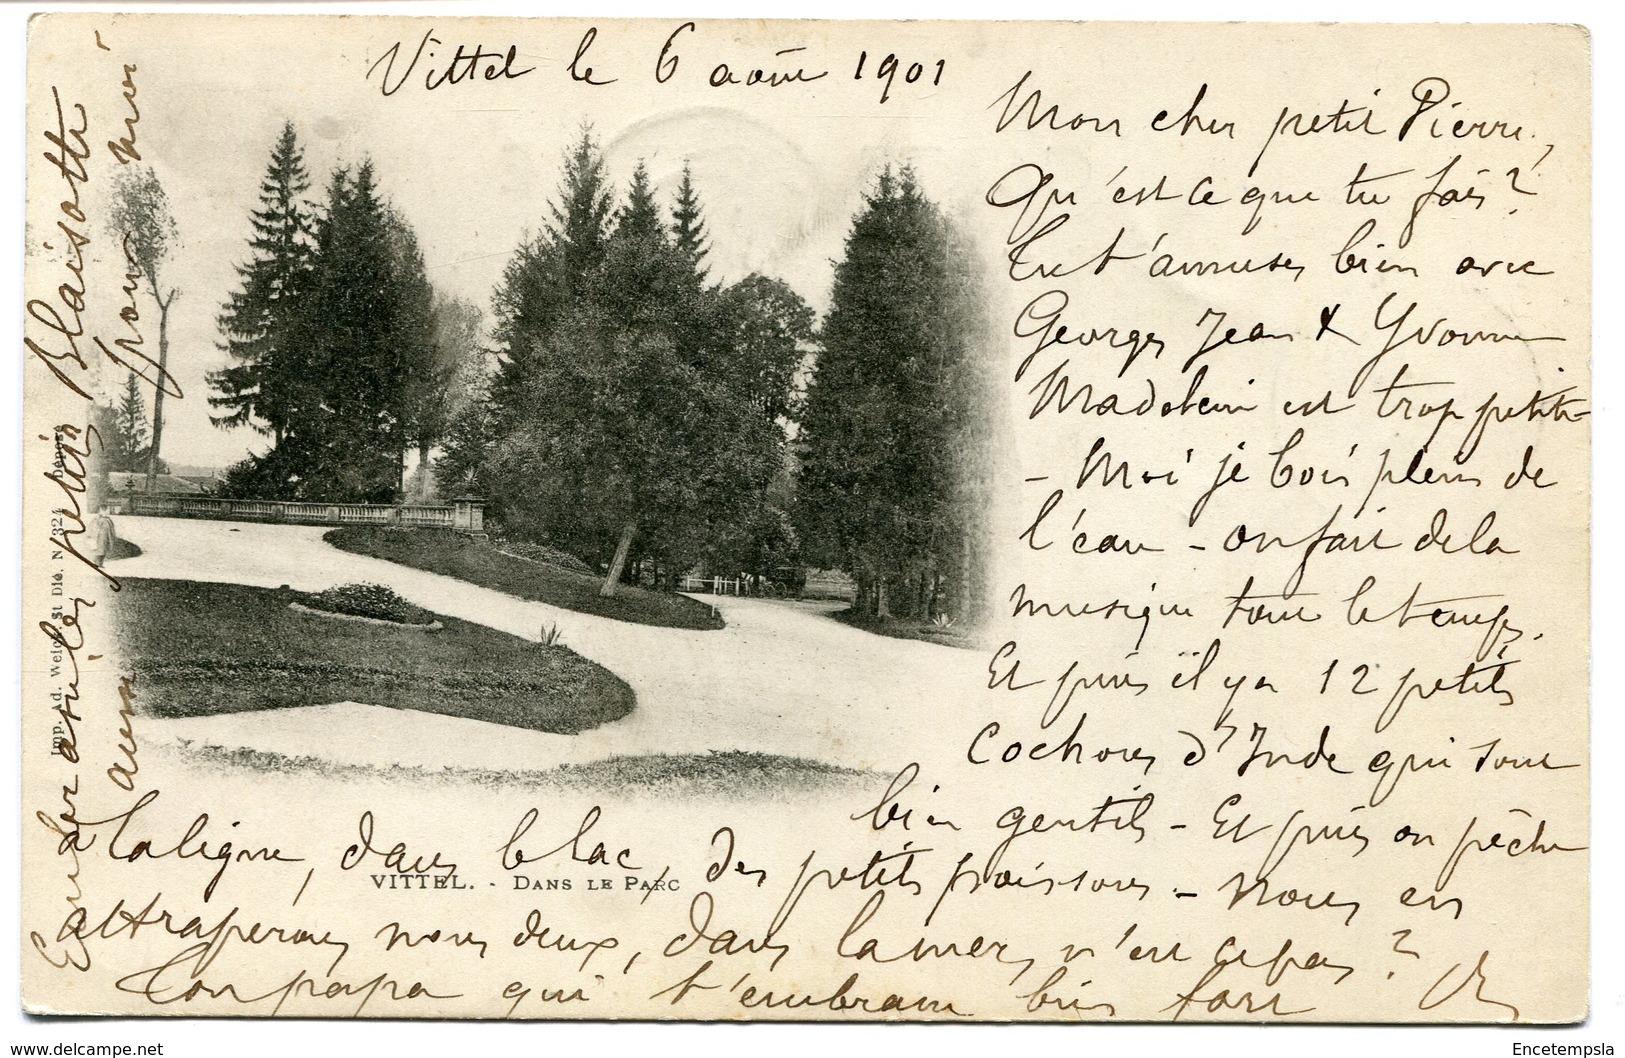 Vittel le 6 août 1901
Mon cher petit Pierre,
Qu'est ce que tu fais?
Tu t'amuses bien avec
Georges Jean & Yvonne
Madelein est trop petite
- Moi je bois plein de
l'eau - on fait de la
musique tout le temps.
Et puis il y a 12 petits
Cochons d'Inde qui sont
bien gentils - Et puis on pêche
à la ligne, dans le lac, des petits poissons - Nous en
attraperons nous deux, dans la mer, n'est ce pas?
Ton papa qui t'embrasse bien fort
Embrasse les petits Blaisotte
aussi pour moi
VITTEL. - DANS LE PARC
Imp. Ad. Weick, St Dié. N 324 Déposé
Encetempsla
www.delcampe.net